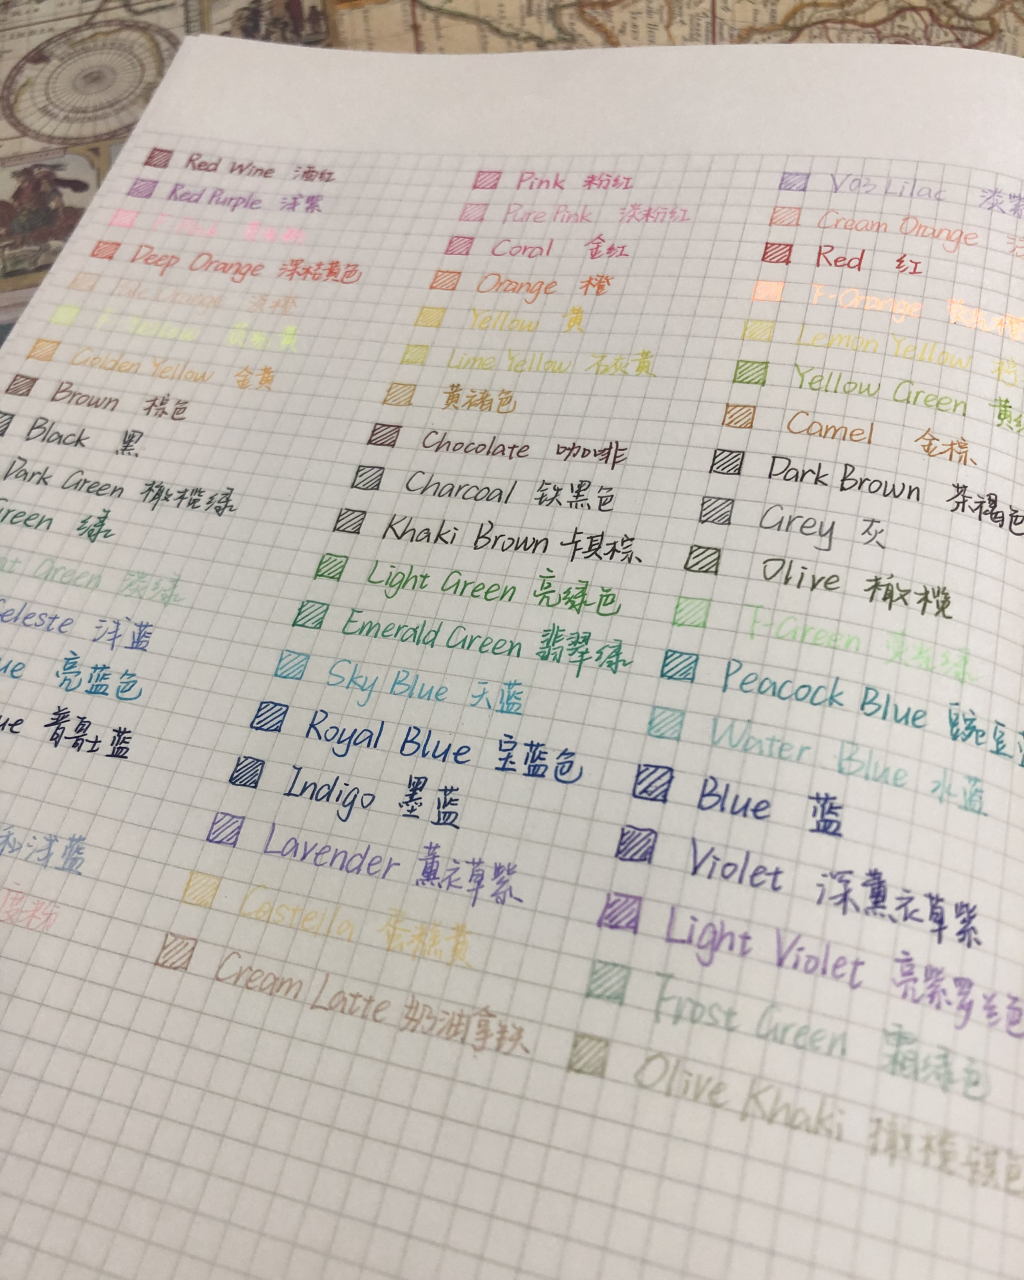 Red Wine 酒红 Pink 粉红 V03 Lilac 淡紫
Red Purple 浮紫 Pure Pink 淡粉红 Cream Orange
Coral 金红 Red 红
Deep Orange 深桔黄色 Orange 橙 F-Orange
Yellow 黄 Lemon Yellow
F-Yellow Lime Yellow 石灰黄 Yellow Green
Golden Yellow 金黄 黄褐色 Camel 金棕
Brown 棕色 Chocolate 咖啡 Dark Brown 茶褐色
Black 黑 Charcoal 铁黑色 Grey 灰
Dark Green 橄榄绿 Khaki Brown 卡其棕 Olive 橄榄
绿 Light Green 亮绿色 F-Green
Green 淡绿 Emerald Green 翡翠绿 Peacock Blue
浅蓝 Sky Blue 天蓝 Water Blue 水蓝
亮蓝色 Royal Blue 宝蓝色 Blue 蓝
普鲁士蓝 Indigo 墨蓝 Violet 深薰衣草紫
Lavender 薰衣草紫 Light Violet 亮紫罗兰色
浅蓝 Castella 蛋糕黄 Frost Green 霜绿色
粉 Cream Latte 奶油拿铁 Olive Khaki